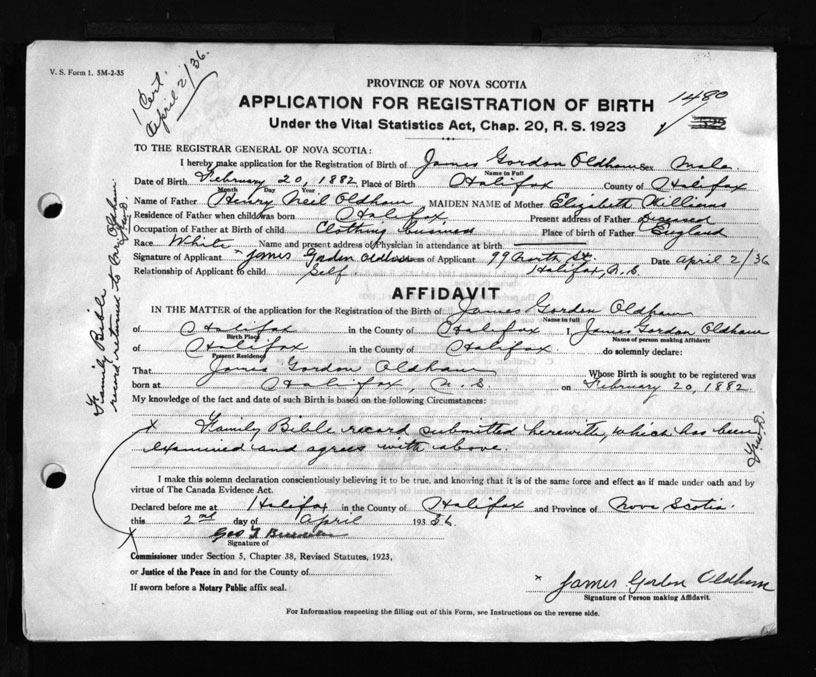 V. S. Form 1. 5M-2-35
1 Cert.
April 2/36.
PROVINCE OF NOVA SCOTIA
APPLICATION FOR REGISTRATION OF BIRTH
1480
Under the Vital Statistics Act, Chap. 20, R. S. 1923
TO THE REGISTRAR GENERAL OF NOVA SCOTIA:
I hereby make application for the Registration of Birth of James Gordon Oldham Sex Male.
Name in Full
Date of Birth February 20, 1882 Place of Birth Halifax County of Halifax
Month Day Year
Name of Father Henry Neil Oldham MAIDEN NAME of Mother Elizabeth Williams
Residence of Father when child was born Halifax Present address of Father Deceased
Occupation of Father at Birth of child Clothing Business Place of birth of Father England
Race White Name and present address of Physician in attendance at birth
Signature of Applicant James Gordon Oldham Address of Applicant 99 North St. Date April 2/36
Relationship of Applicant to child Self. Halifax, N.S.
Family Bible
record returned to Mr Oldham.
AFFIDAVIT
IN THE MATTER of the application for the Registration of the Birth of James Gordon Oldham
Name in full
of Halifax in the County of Halifax I, James Gordon Oldham
Birth Place Name of person making Affidavit
of Halifax in the County of Halifax. do solemnly declare:
Present Residence
That James Gordon Oldham Whose Birth is sought to be registered was
born at Halifax, N.S. on February 20, 1882.
My knowledge of the fact and date of such Birth is based on the following Circumstances:
x Family Bible record submitted herewith, which has been
examined and agrees with above.
I make this solemn declaration conscientiously believing it to be true, and knowing that it is of the same force and effect as if made under oath and by
virtue of The Canada Evidence Act.
Declared before me at Halifax in the County of Halifax and Province of Nova Scotia.
this 2nd day of April 1936.
x Geo
Signature of
Commissioner under Section 5, Chapter 38, Revised Statutes, 1923,
or Justice of the Peace in and for the County of
If sworn before a Notary Public affix seal.
x James Gordon Oldham
Signature of Person making Affidavit.
For Information respecting the filling out of this Form, see Instructions on the reverse side.